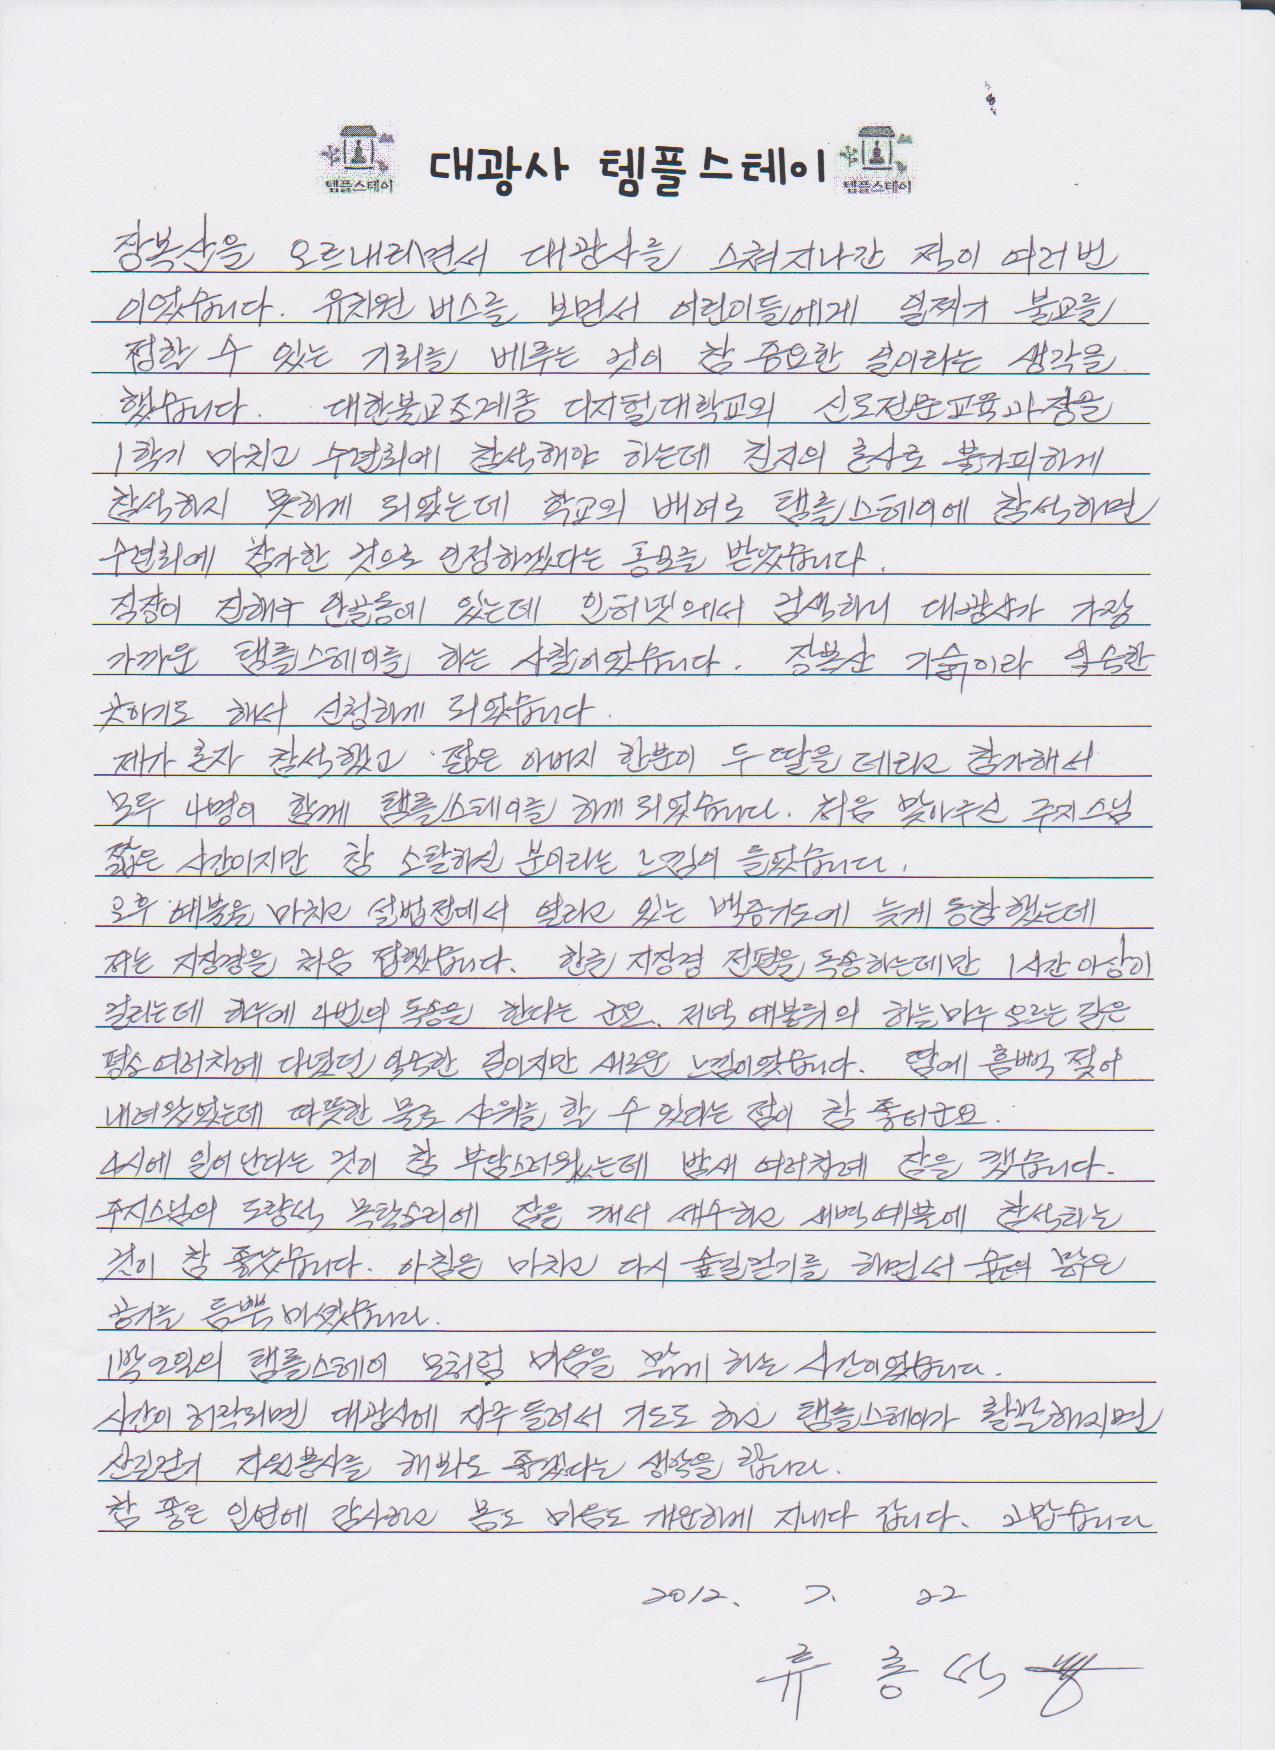 대광사 템플스테이
템플스테이
템플스테이
장복산을 오르내리면서 대광사를 스쳐지나간 적이 여러번
이었습니다. 유치원 버스를 보면서 어린이들에게 일찍기 불교를
접할 수 있는 기회를 베푸는 것이 참 중요한 일이라는 생각을
했습니다. 대한불교조계종 디지털대학교의 신도전문교육과정을
1학기 마치고 수련회에 참석해야 하는데 친지의 혼사로 불가피하게
참석하지 못하게 되었는데 학교의 배려로 템플스테이에 참석하면
수련회에 참가한 것으로 인정하겠다는 통보를 받았습니다.
직장이 진해구 안골동에 있는데 인터넷에서 검색하니 대광사가 가장
가까운 템플스테이를 하는 사찰이었습니다. 장복산 기슭이라 익숙한
곳이기도 해서 신청하게 되었습니다.
제가 혼자 참석했고 젊은 아버지 한분이 두 딸을 데리고 참가해서
모두 4명이 함께 템플스테이를 하게 되었습니다. 처음 맞아주신 주지스님
짧은 시간이지만 참 소탈하신 분이라는 느낌이 들었습니다.
오후 예불을 마치고 설법전에서 열리고 있는 백중기도에 늦게 동참했는데
저는 지장경을 처음 접했습니다. 한글 지장경 전편을 독송하는데만 1시간 이상이
걸리는데 하루에 4번의 독송을 한다는 군요. 저녁 예불뒤의 하늘마루 오르는 길은
평소 여러차례 다녔던 익숙한 길이지만 새로운 느낌이었습니다. 땀에 흠뻑 젖어
내려왔었는데 따뜻한 물로 샤워를 할 수 있다는 점이 참 좋더군요.
4시에 일어난다는 것이 참 부담스러웠는데 밤새 여러차례 잠을 깼습니다.
주지스님의 도량석 목탁소리에 잠을 깨서 세수하고 새벽예불에 참석하는
것이 참 좋았습니다. 아침을 마치고 다시 숲길걷기를 하면서 숲의 맑은
공기를 듬뿍 마셨습니다.
1박2일의 템플스테이 모처럼 마음을 맑게 하는 시간이었습니다.
시간이 허락되면 대광사에 자주 들려서 기도도 하고 템플스테이가 활발해지면
산길걷기 자원봉사를 해봐도 좋겠다는 생각을 합니다.
참 좋은 인연에 감사하고 몸도 마음도 개운하게 지내다 갑니다. 고맙습니다
2012. 7. 22
류 홍 석